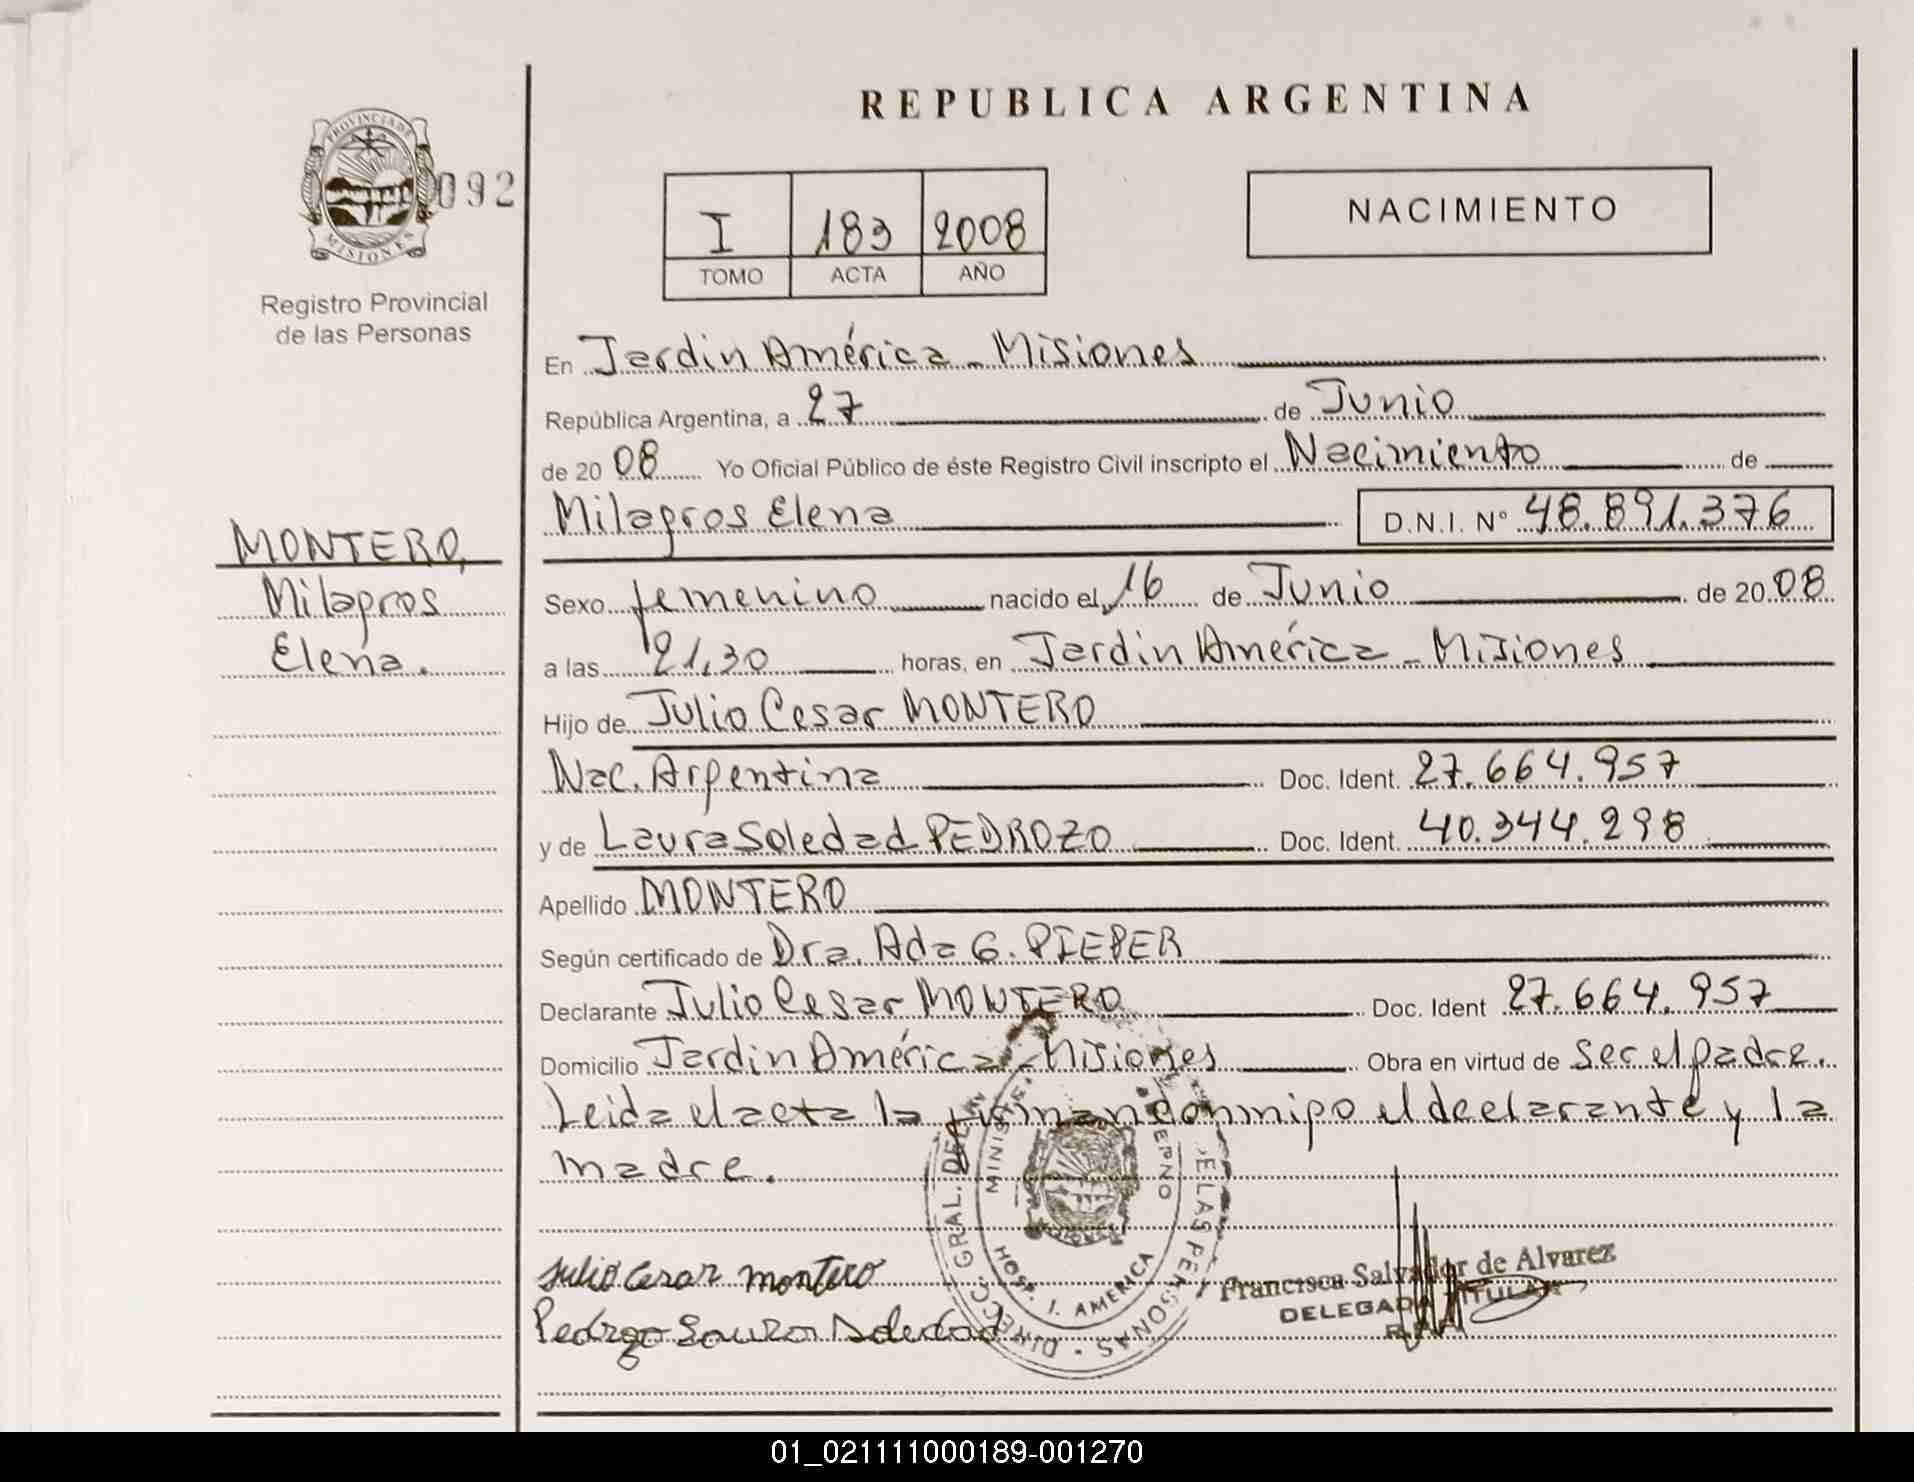 REPUBLICA ARGENTINA
PROVINCIA DE
MISIONES
092
Registro Provincial
de las Personas
I 183 2008
TOMO ACTA AÑO
NACIMIENTO
En Jardin América - Misiones
República Argentina, a 27 de Junio
de 2008 Yo Oficial Público de éste Registro Civil inscripto el Nacimiento de
Milagros Elena D.N.I. N° 48.891.376
MONTERO,
Milagros
Elena.
Sexo femenino nacido el 16 de Junio de 2008
a las 21,30 horas, en Jardin América - Misiones
Hijo de Julio Cesar MONTERO
Nac. Argentina Doc. Ident. 27.664.957
y de Laura Soledad PEDROZO Doc. Ident. 40.344.298
Apellido MONTERO
Según certificado de Dra. Ada G. PIEPER
Declarante Julio Cesar MONTERO Doc. Ident 27.664.957
Domicilio Jardin América - Misiones Obra en virtud de ser el padre.
Leida el acta la firman conmigo el declarante y la
madre.
Julio Cesar Montero
Francisca Salvador de Alvarez
DELEGADA TITULAR
Soledad
DIRECC. GRAL. DEL DE LAS PERSONAS
HOSP. J. AMERICA
01_021111000189-001270